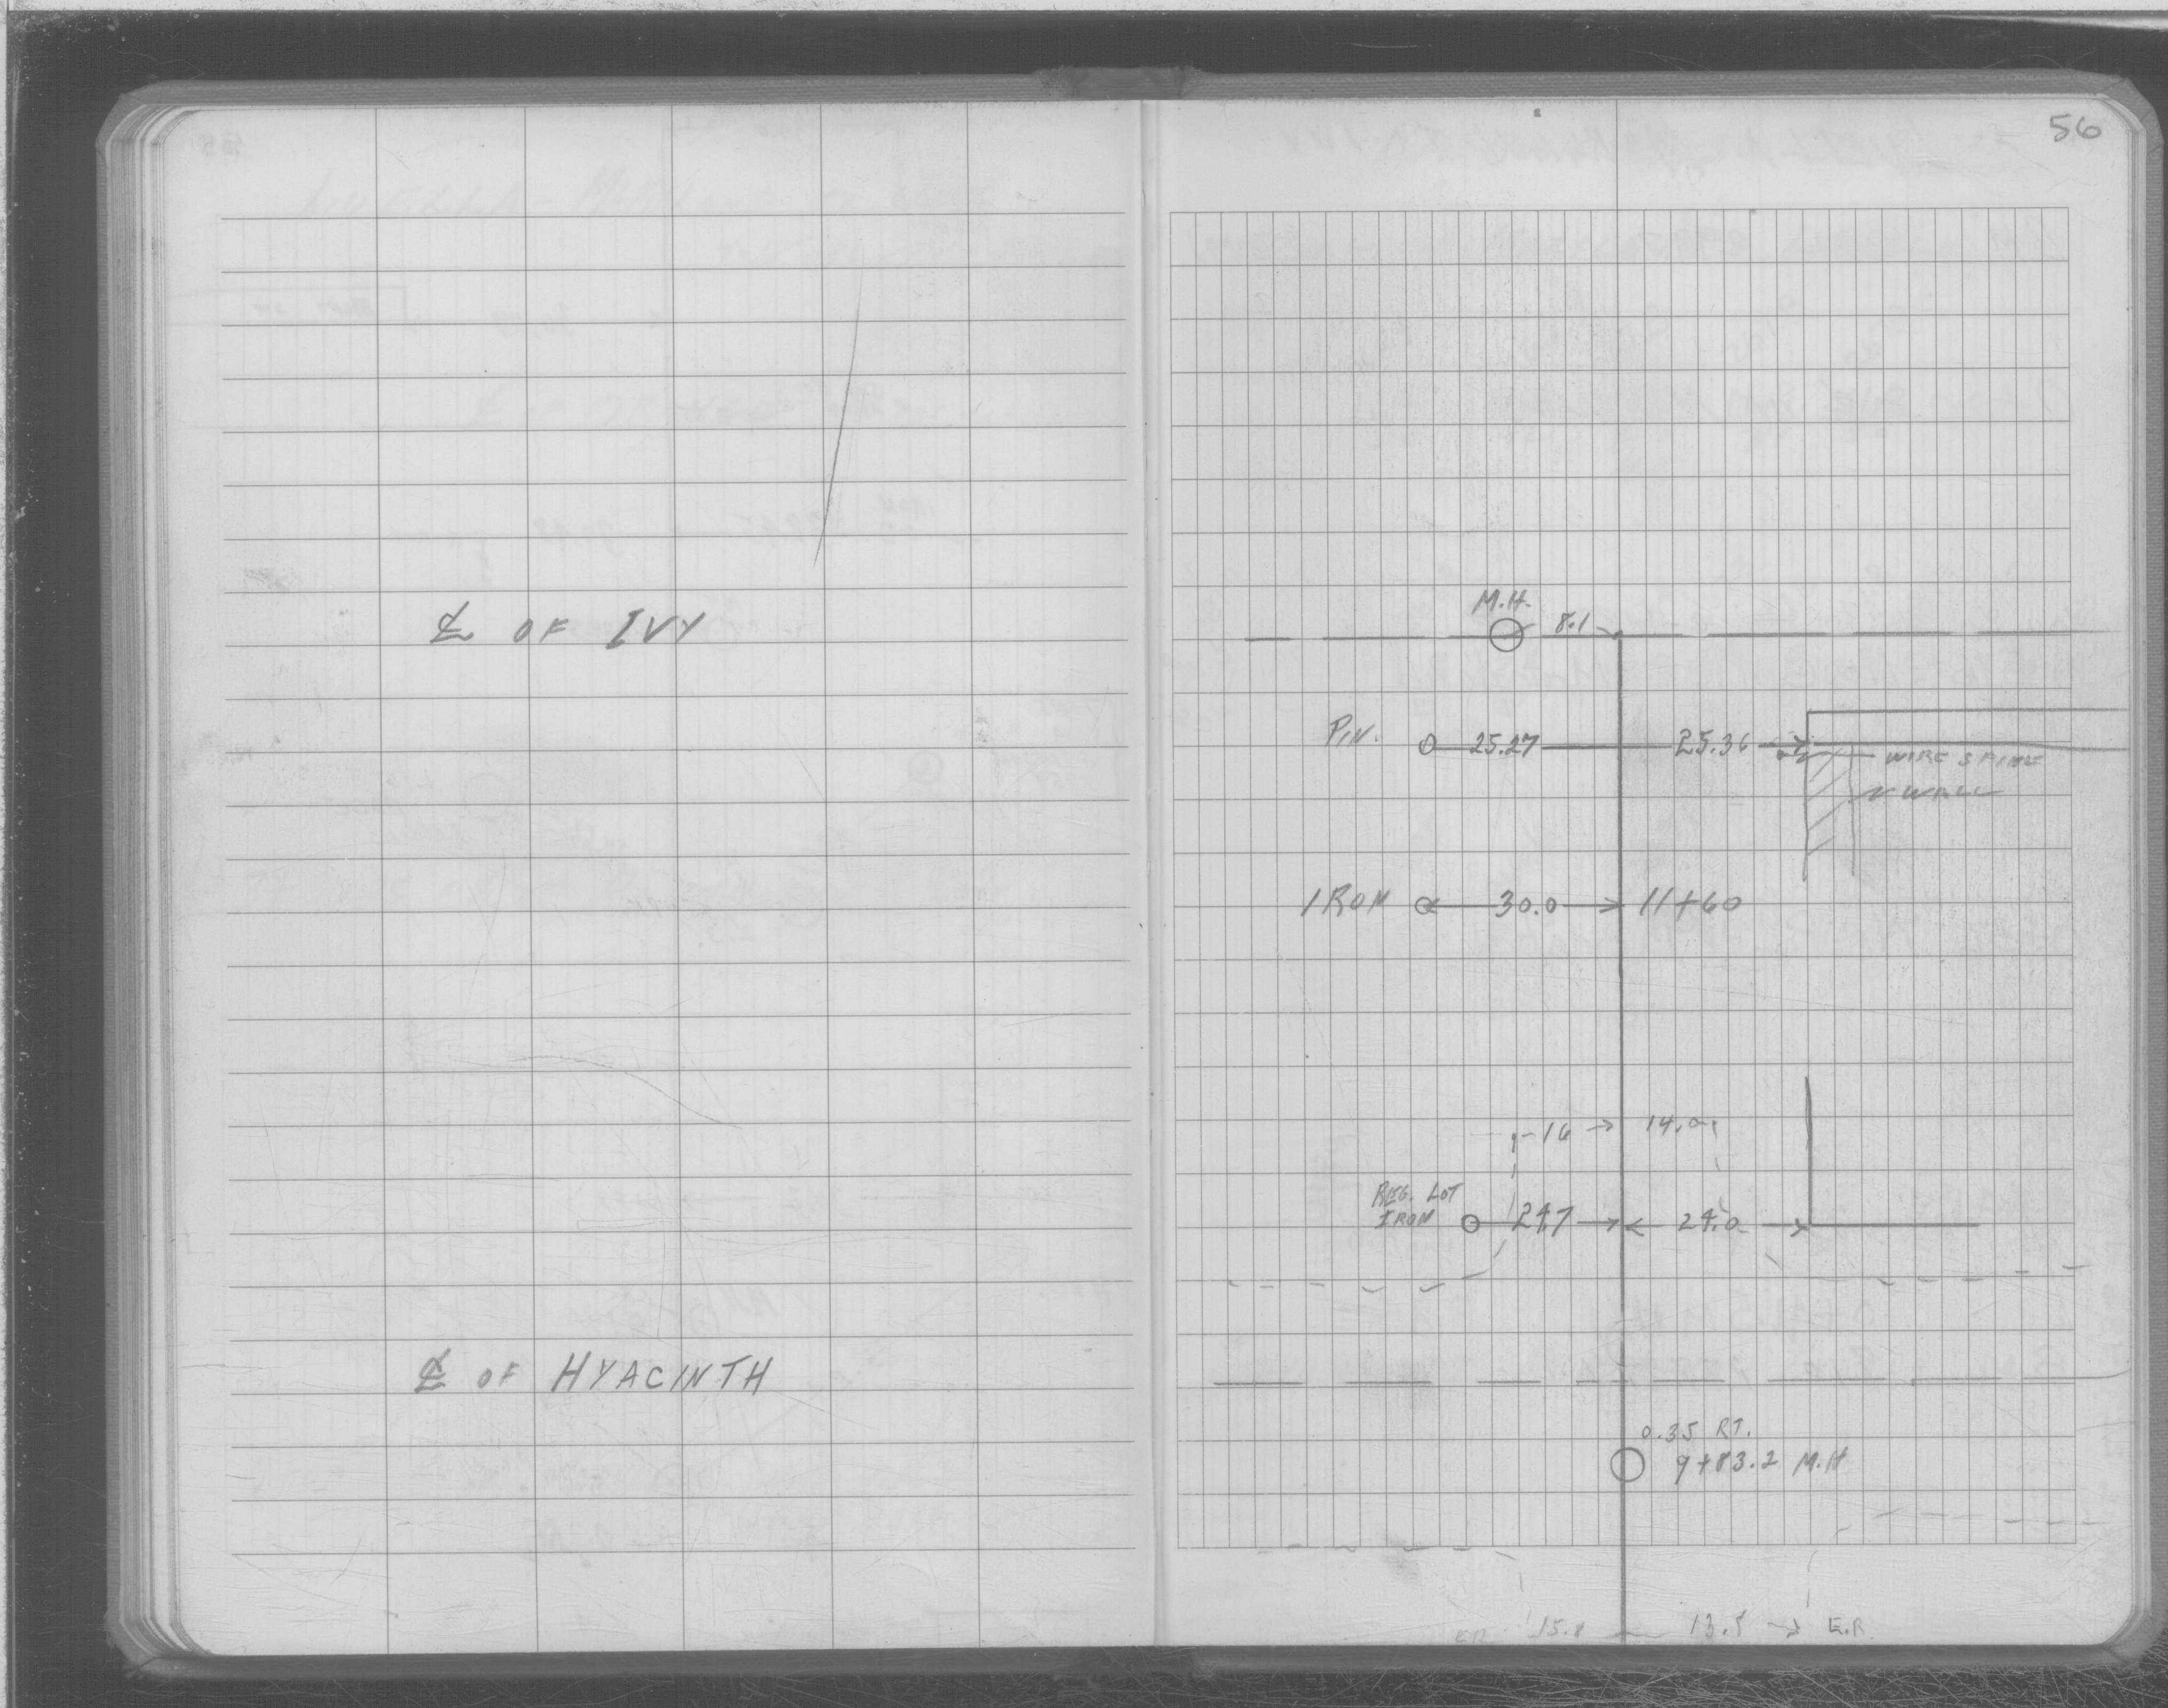 56
℄ OF IVY
M.H.
8.1
PIN.
25.27
25.36
WIRE SPIKE
WALL
IRON
30.0
11+60
16
14.0
REG. LOT
IRON
24.7
24.0
℄ OF HYACINTH
0.35 RT.
9+83.2 M.H
E.R.
15.8
E.R.